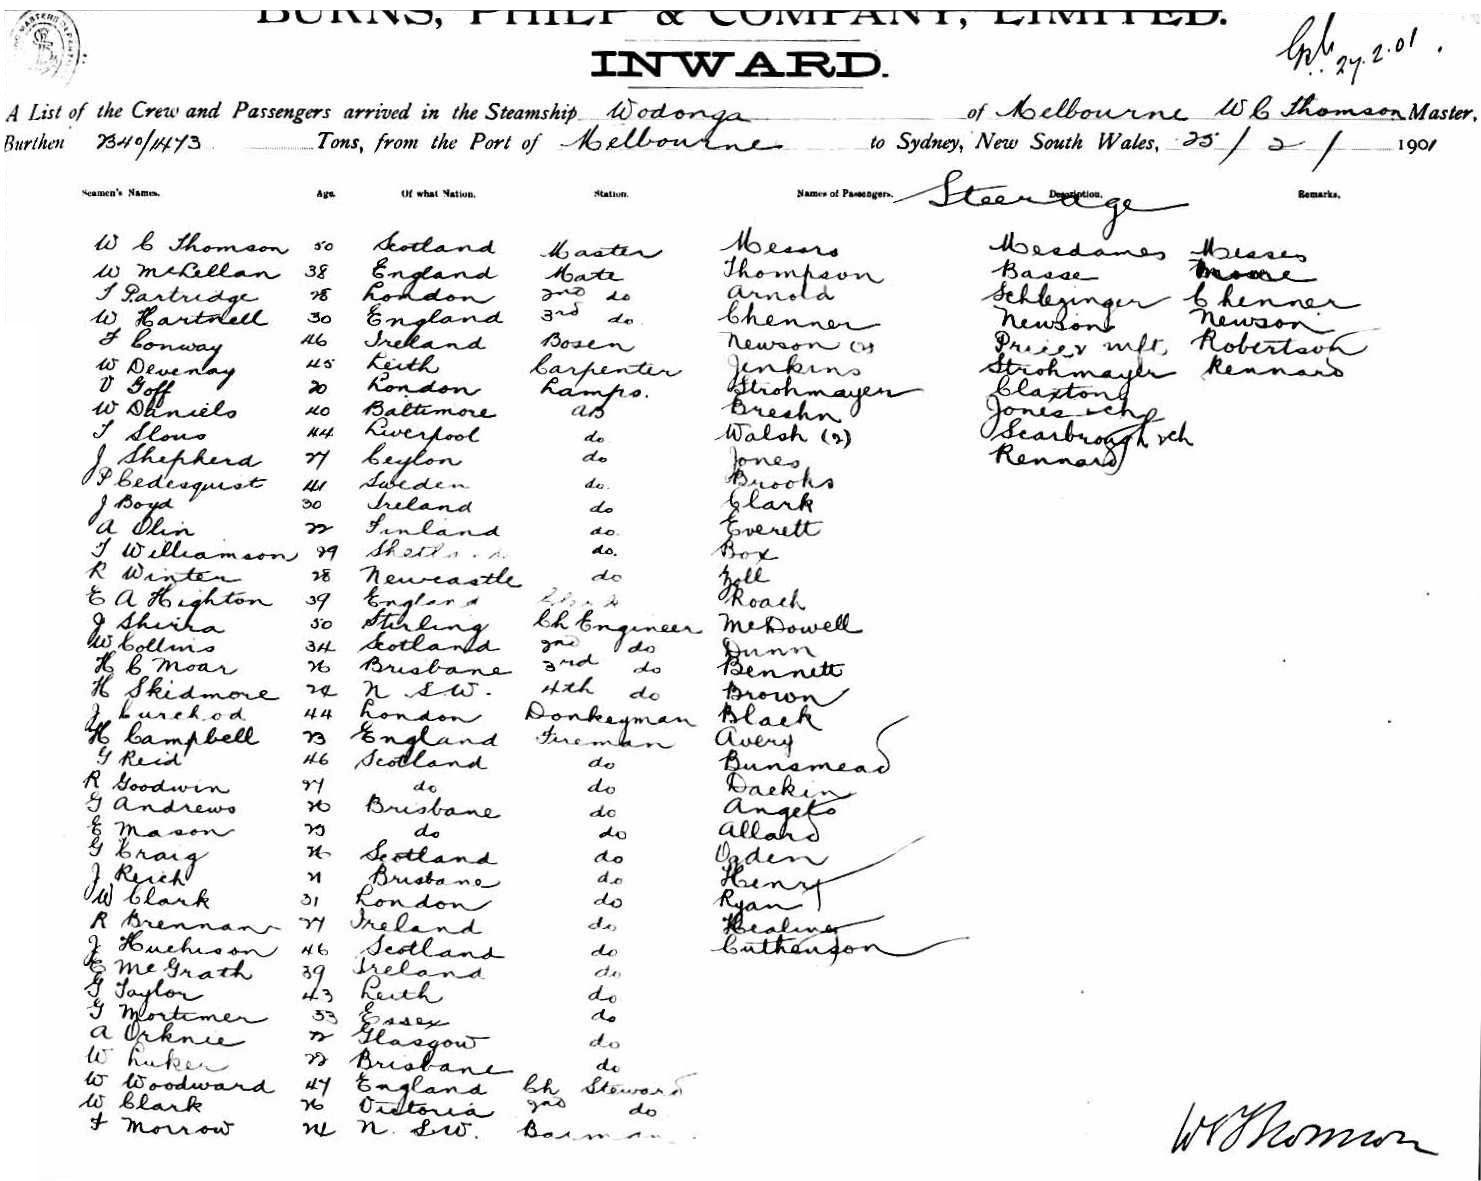 BURNS, PHILP & COMPANY, LIMITED.
INWARD.
27.2.01
A List of the Crew and Passengers arrived in the Steamship Wodonga of Melbourne W C Thomson Master,
Burthen 2340/1473 Tons, from the Port of Melbourne to Sydney, New South Wales, 25/2/1901
Seamen's Names. Age. Of what Nation. Station. Names of Passengers. Steerage Description. Remarks.
W C Thomson 50 Scotland Master Messrs Mesdames Misses
W McLellan 38 England Mate Thompson Basse Moore
T Partridge 28 London 2nd do Arnold Schlezinger Chenner
W Hartnell 30 England 3rd do Chenner Newson Newson
F Conway 46 Ireland Bosen Newson (2) Robertson
W Devenay 45 Leith Carpenter Jenkins Strohmayer Rennard
V Goff 20 London Lamps. Strohmayer Claxton
W Daniels 40 Baltimore AB Breshn Jones & ch
T Slous 44 Liverpool do Walsh (2) Scarbrough & ch
J Shepherd 27 Ceylon do Jones Rennard
P Cedesquist 41 Sweden do. Brooks
J Boyd 30 Ireland do Clark
A Olin 22 Finland do. Everett
T Williamson 29 do. Box
R Winter 28 Newcastle do Zoll
E A Highton 39 England Roach
J Shirra 50 Stirling Ch Engineer McDowell
W Collins 34 Scotland 2nd do Dunn
H C Moar 26 Brisbane 3rd do Bennett
H Skidmore 24 N S W. 4th do Brown
J Curchod 44 London Donkeyman Black
H Campbell 23 England Fireman Avery
G Reid 46 Scotland do Bunsmead
R Goodwin 27 do do Dackin
G Andrews 26 Brisbane do Angelo
E Mason 23 do do Allard
G Craig 26 Scotland do Ogden
J Reich 21 Brisbane do Henry
W Clark 31 London do Ryan
R Brennan 27 Ireland do
J Huchison 46 Scotland do Cuthenson
E McGrath 39 Ireland do
G Taylor 43 Leith do
G Mortimer 33 Essex do
A Orknie 22 Glasgow do
W Luker 22 Brisbane do
W Woodward 47 England Ch Steward
W Clark 26 Victoria 2nd do
F Morrow 24 N. S.W. Barman
W C Thomson